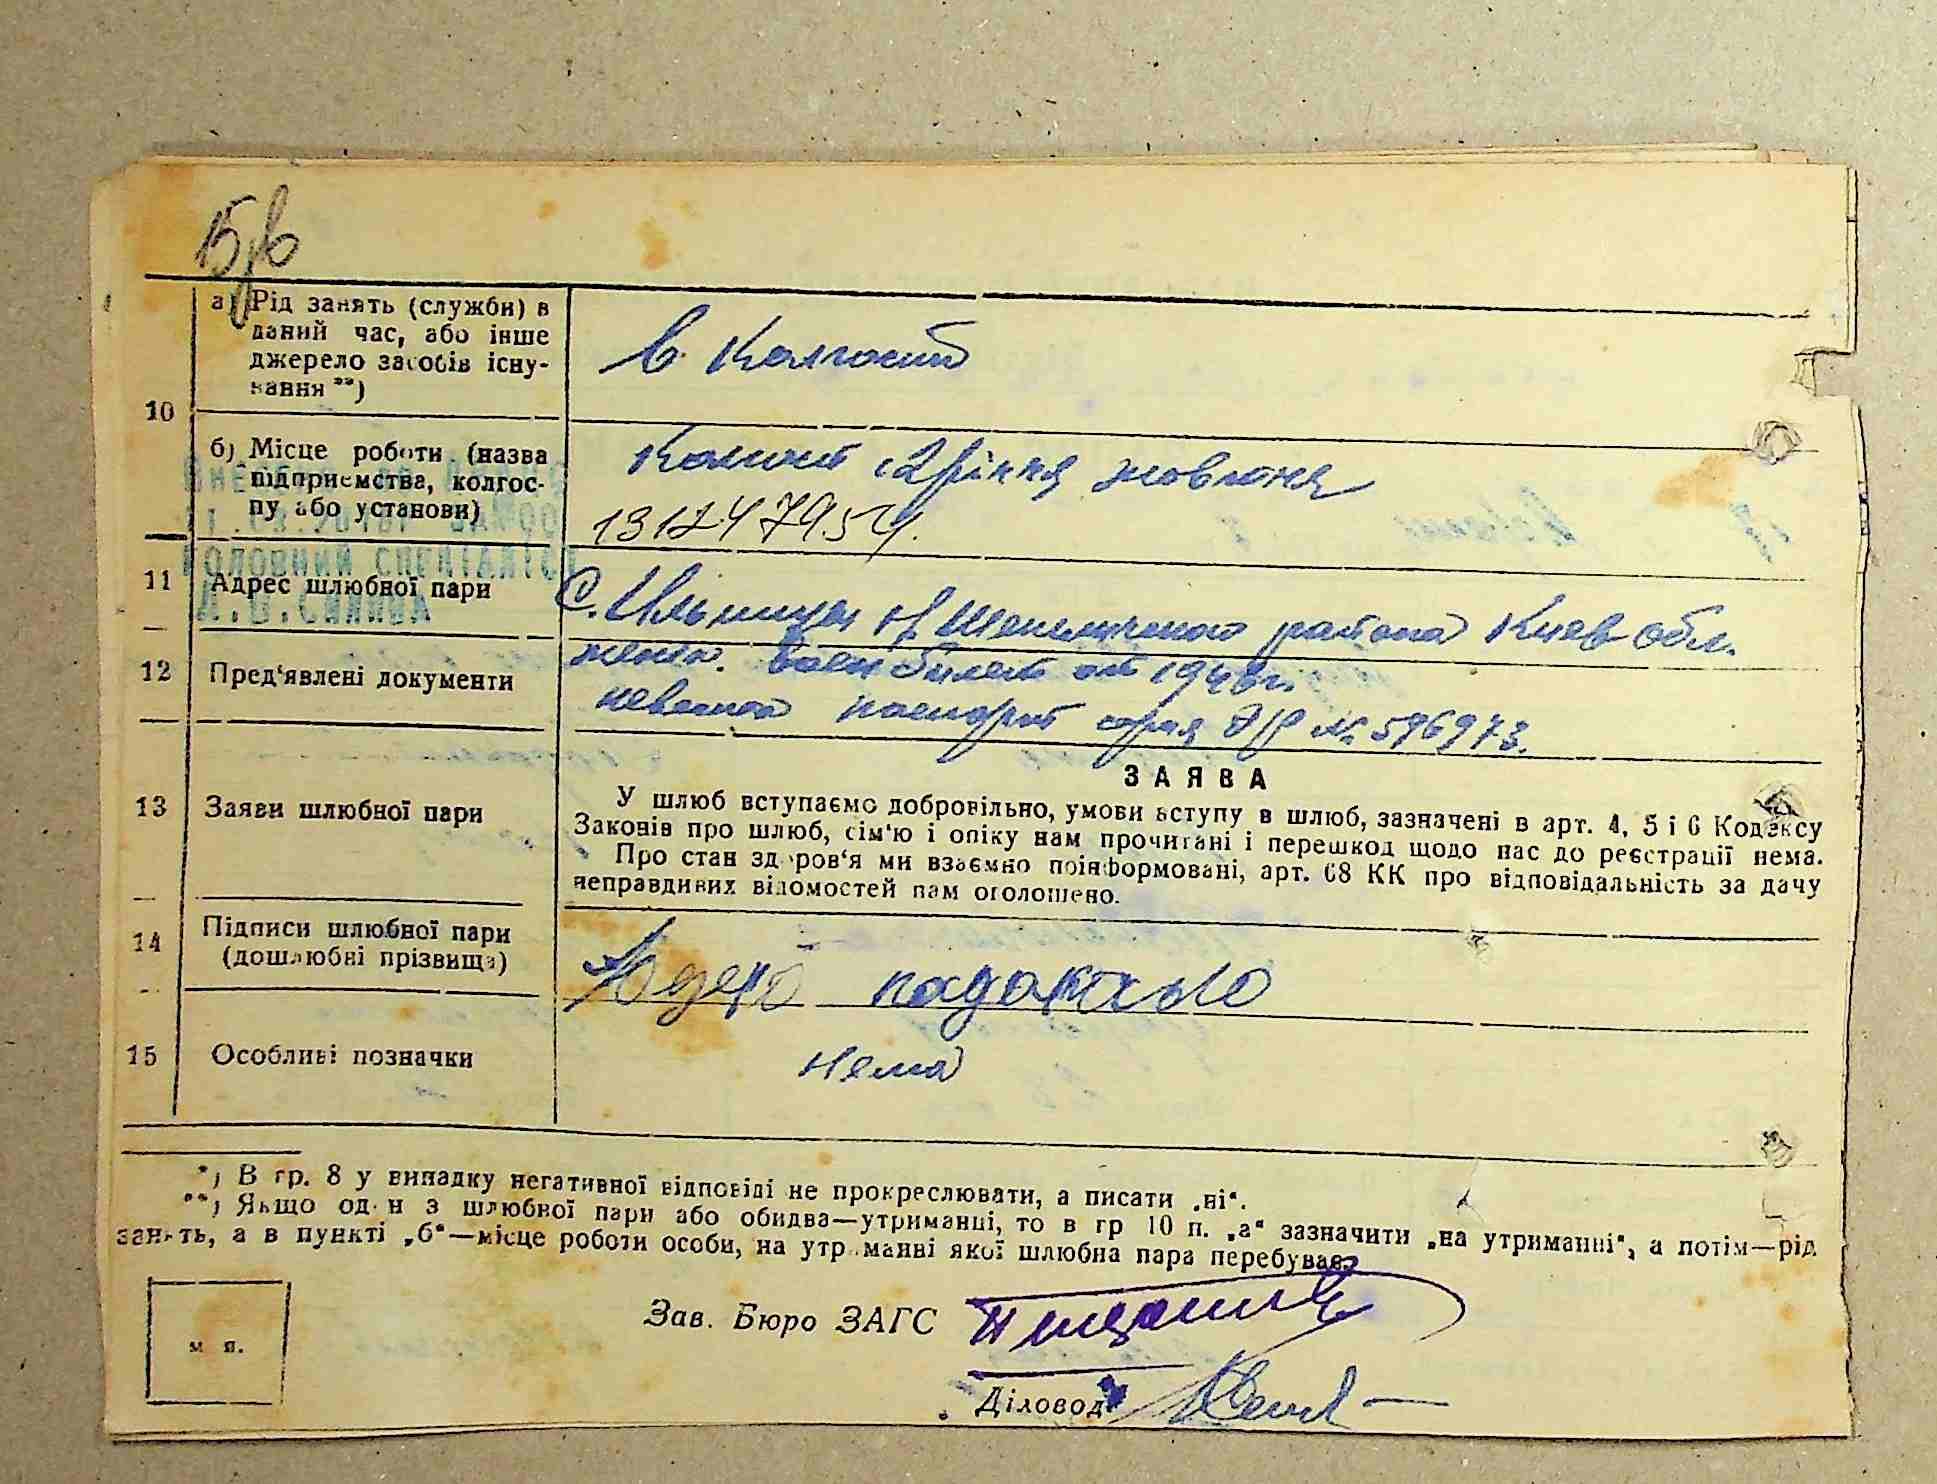 15/в
а) Рід занять (служби) в
даний час, або інше
джерело засобів існу-
вання **)
в Колгоспі
10
б) Місце роботи (назва
підприємства, колгос-
пу або установи)
Колгосп Жовтня
13124795
11 Адрес шлюбної пари
с. района Киев обл.
12 Пред'явлені документи
жених. Воен билет от 1948 г.
невеста паспорт серия № 596973.
ЗАЯВА
13 Заяви шлюбної пари
У шлюб вступаємо добровільно, умови вступу в шлюб, зазначені в арт. 4, 5 і 6 Кодексу
Законів про шлюб, сім'ю і опіку нам прочитані і перешкод щодо нас до реєстрації нема.
Про стан здоров'я ми взаємно поінформовані, арт. 68 КК про відповідальність за дачу
неправдивих відомостей нам оголошено.
14 Підписи шлюбної пари
(дошлюбні прізвища)
15 Особливі позначки
нема
*) В гр. 8 у випадку негативної відповіді не прокреслювати, а писати „ні“.
**) Якщо один з шлюбної пари або обидва—утриманці, то в гр 10 п. „а“ зазначити „на утриманні“, а потім—рід
занять, а в пункті „б“—місце роботи особи, на утриманні якої шлюбна пара перебуває.
Зав. Бюро ЗАГС
м п.
Діловод
ГОЛОВНИЙ СПЕЦІАЛІСТ